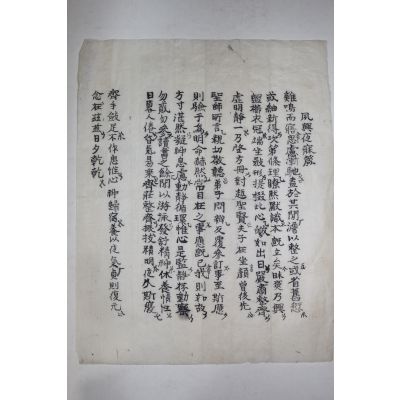 夙興夜寐箴
雞鳴而寤思慮漸馳盍於其間澹以整之或省舊愆
或紬新得次第條理瞭然默識本旣立矣昧爽乃興
盥櫛衣冠端坐斂形提掇此心皦如出日嚴肅整齊
虛明靜一乃啓方冊對越聖賢夫子在坐顔曾後先
聖師所言親切敬聽弟子問辨反覆參訂事至斯應
則驗于爲明命赫然常目在之事應旣已我則如故
方寸湛然凝神息慮動靜循環惟心是監靜存動察
勿貳勿參讀書之餘間以游泳發舒精神休養情性
日暮人倦昏氣易乘齋莊整齊振拔精明夜久斯寢
齊手斂足不作思惟心神歸宿養以夜氣貞則復元
念玆在玆日夕乾乾